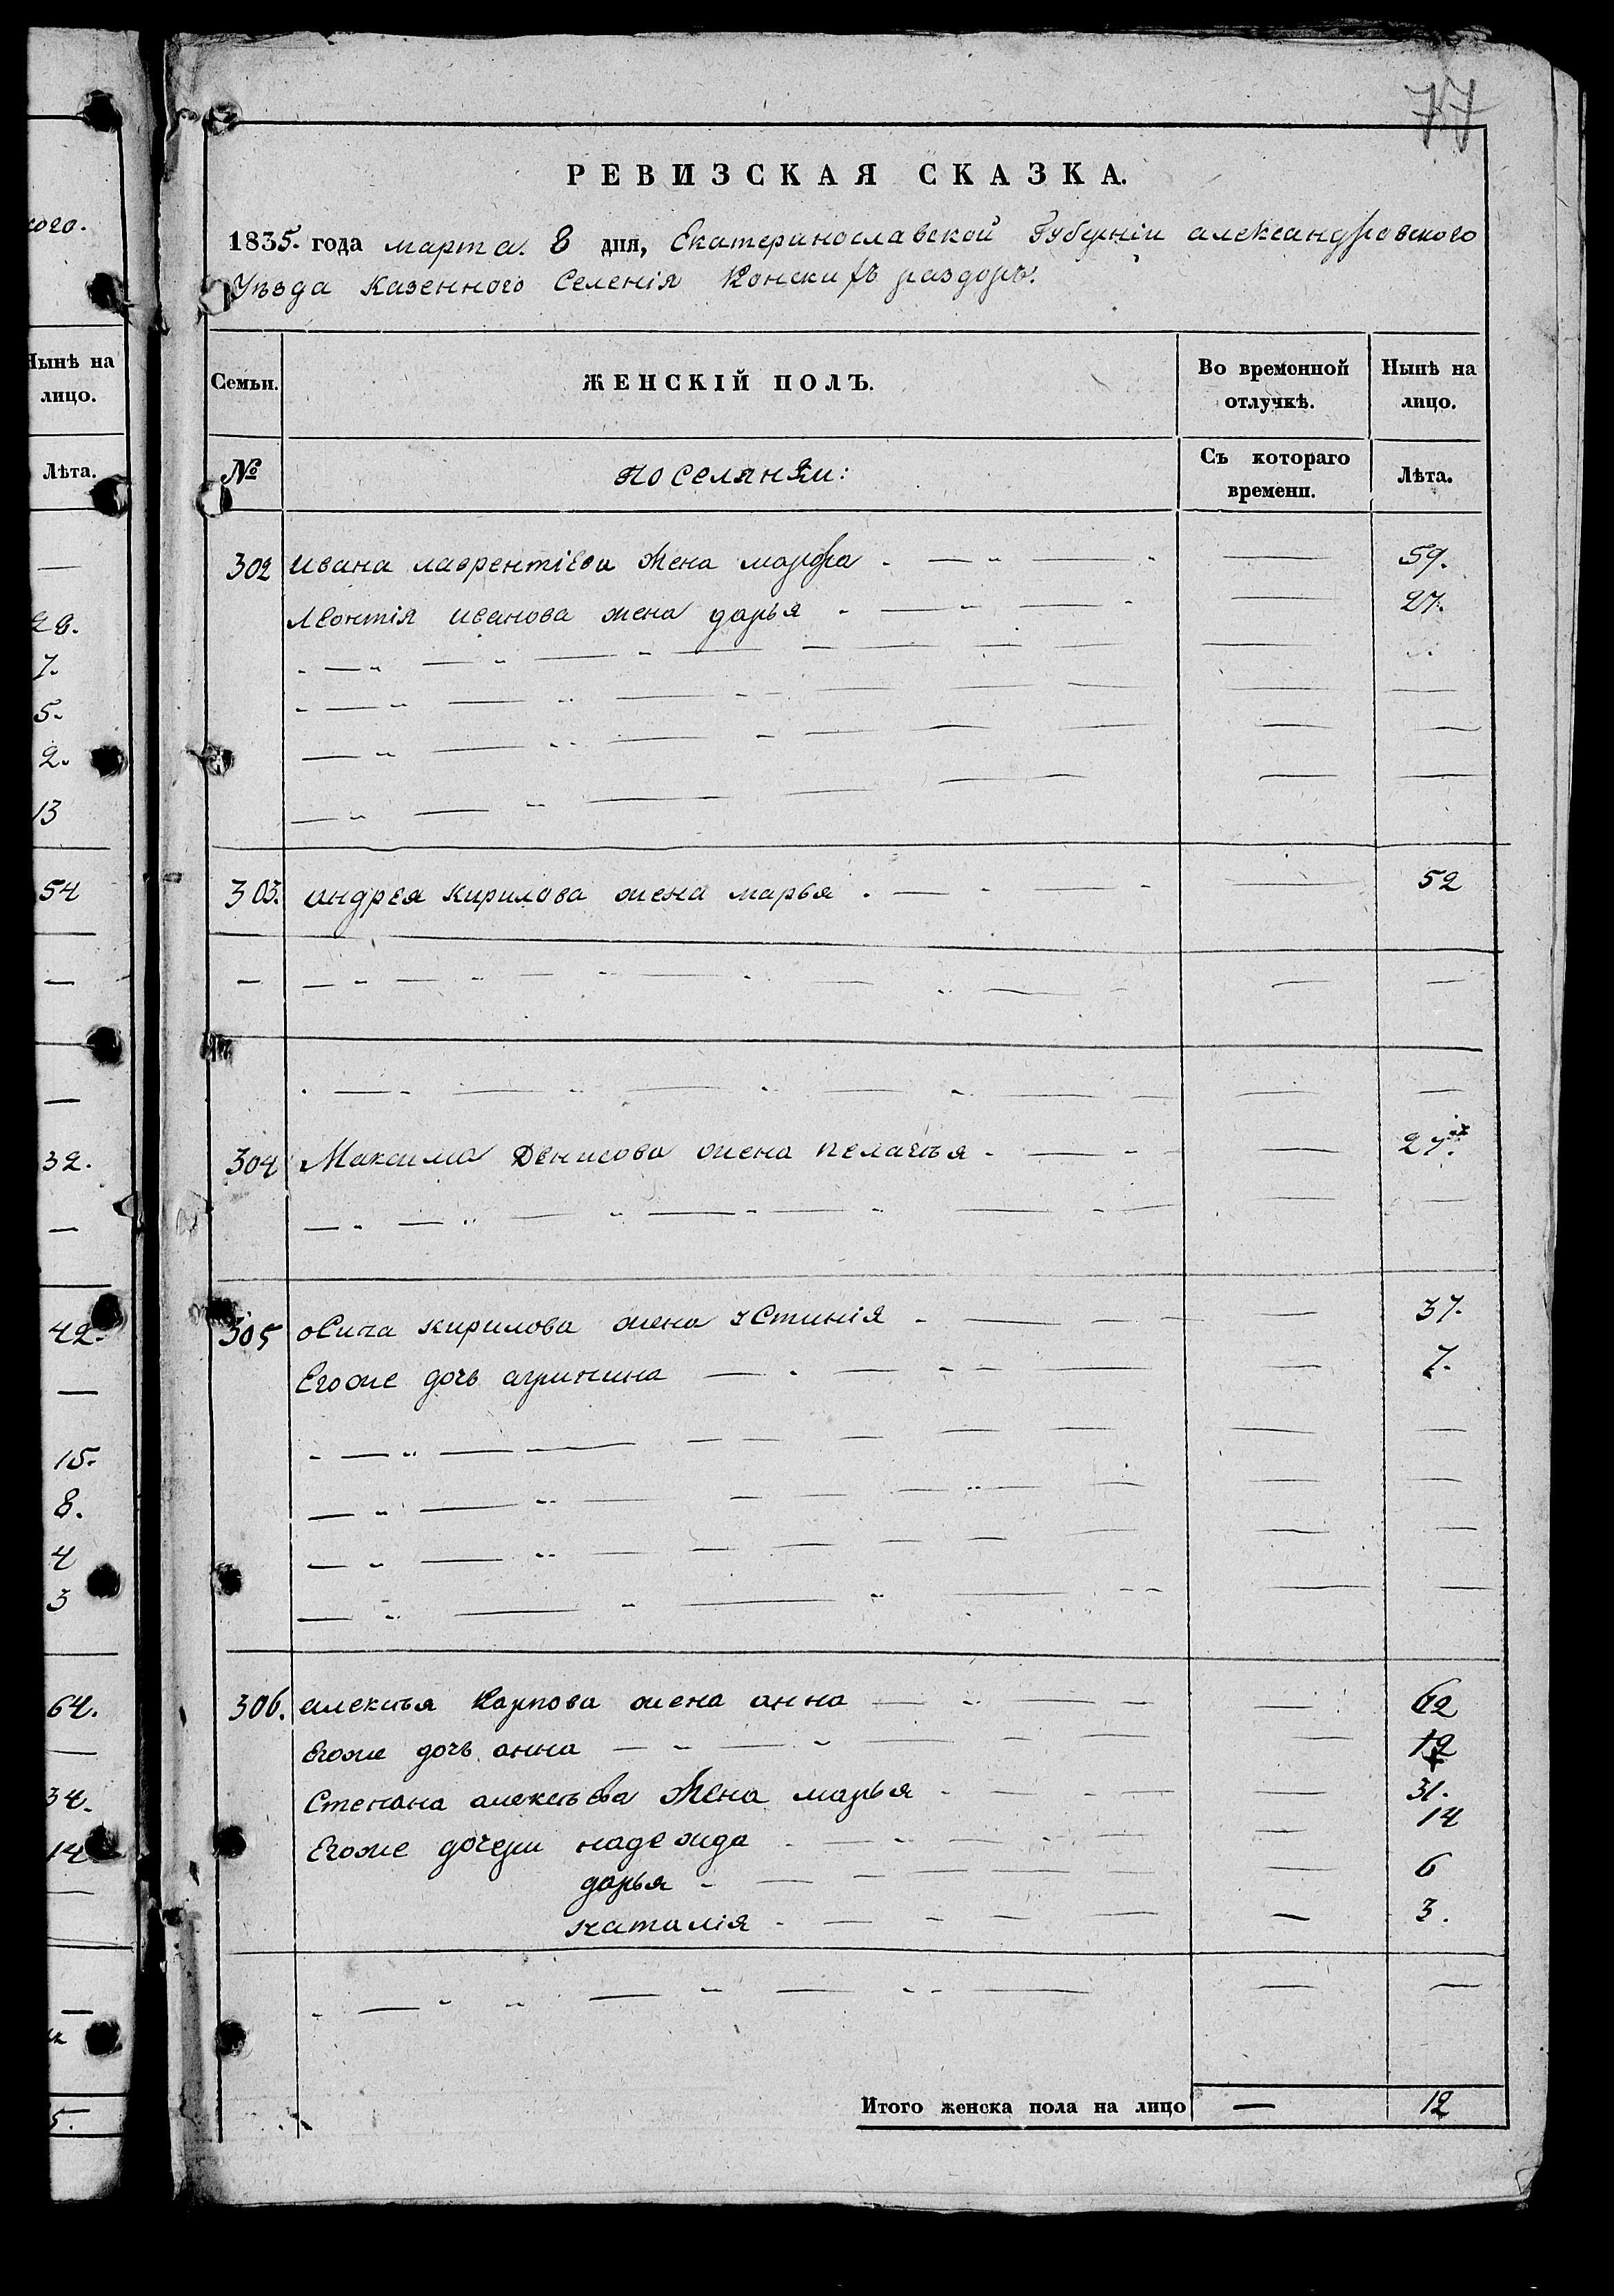 77
РЕВИЗСКАЯ СКАЗКА.
1835. года марта. 8 дня, Екатеринославской Губерніи александровскаго
Уѣзда Казенного Селенія Конскихъ раздоръ.
Семьи. ЖЕНСКІЙ ПОЛЪ. Во временной отлучкѣ. Нынѣ на лицо.
№ поселянѣи: Съ котораго времени. Лѣта.
302 ивана лаврентіева Жена марфа 59.
Леонтія иванова жена дарья 27.
303. андрея кирилова жена марья 52
304 Максима Денисова жена пелагѣя 27.
305 осипа кирилова жена устинія 37.
Егоже дочь агрипина 7.
306. алексѣя Карпова жена анна 62
Егоже дочь анна 12
Степана алексѣева Жена марья 31.
Егоже дочери надежда 14
дарья 6
наталія 3.
Итого женска пола на лицо — 12
кого.
Нынѣ на
лицо.
Лѣта.
28.
7.
5.
2.
13
54
32.
42.
15.
8.
4
3
64.
34.
14
5.